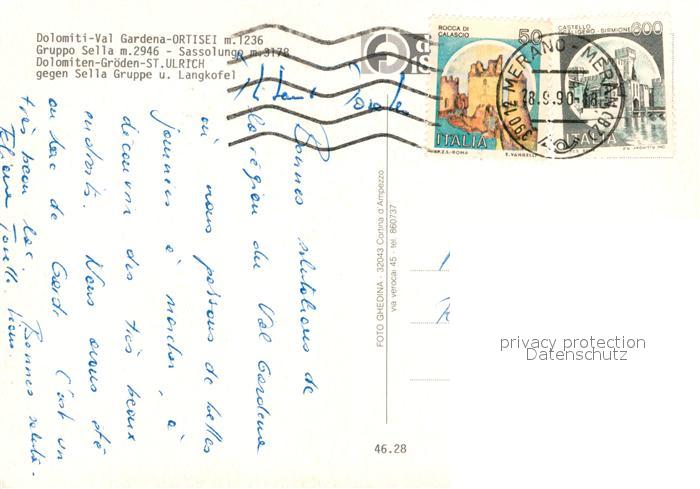 Dolomiti-Val Gardena-ORTISEI m.1236
Gruppo Sella m.2946 - Sassolungo m.3178
Dolomiten-Gröden-ST.ULRICH
gegen Sella Gruppe u. Langkofel
ROCCA DI
CALASCIO
50
ITALIA
I.P.Z.S.-ROMA
E. VANGELLI
CASTELLO
SCALIGERO-SIRMIONE
600
ITALIA
39012 MERANO-MERAN (BZ)
18.9.90-18
Bonnes salutations de
la région du Val Gardena
où nous passons de belles
journées à marcher, à
découvrir des très beaux
endroits. Nous avons été
au lac de Garde C'est un
très beau lac. Bonnes saluta-
tions.
FOTO GHEDINA - 32043 Cortina d'Ampezzo
via verocai 45 - tel. 860737
46.28
privacy protection
Datenschutz